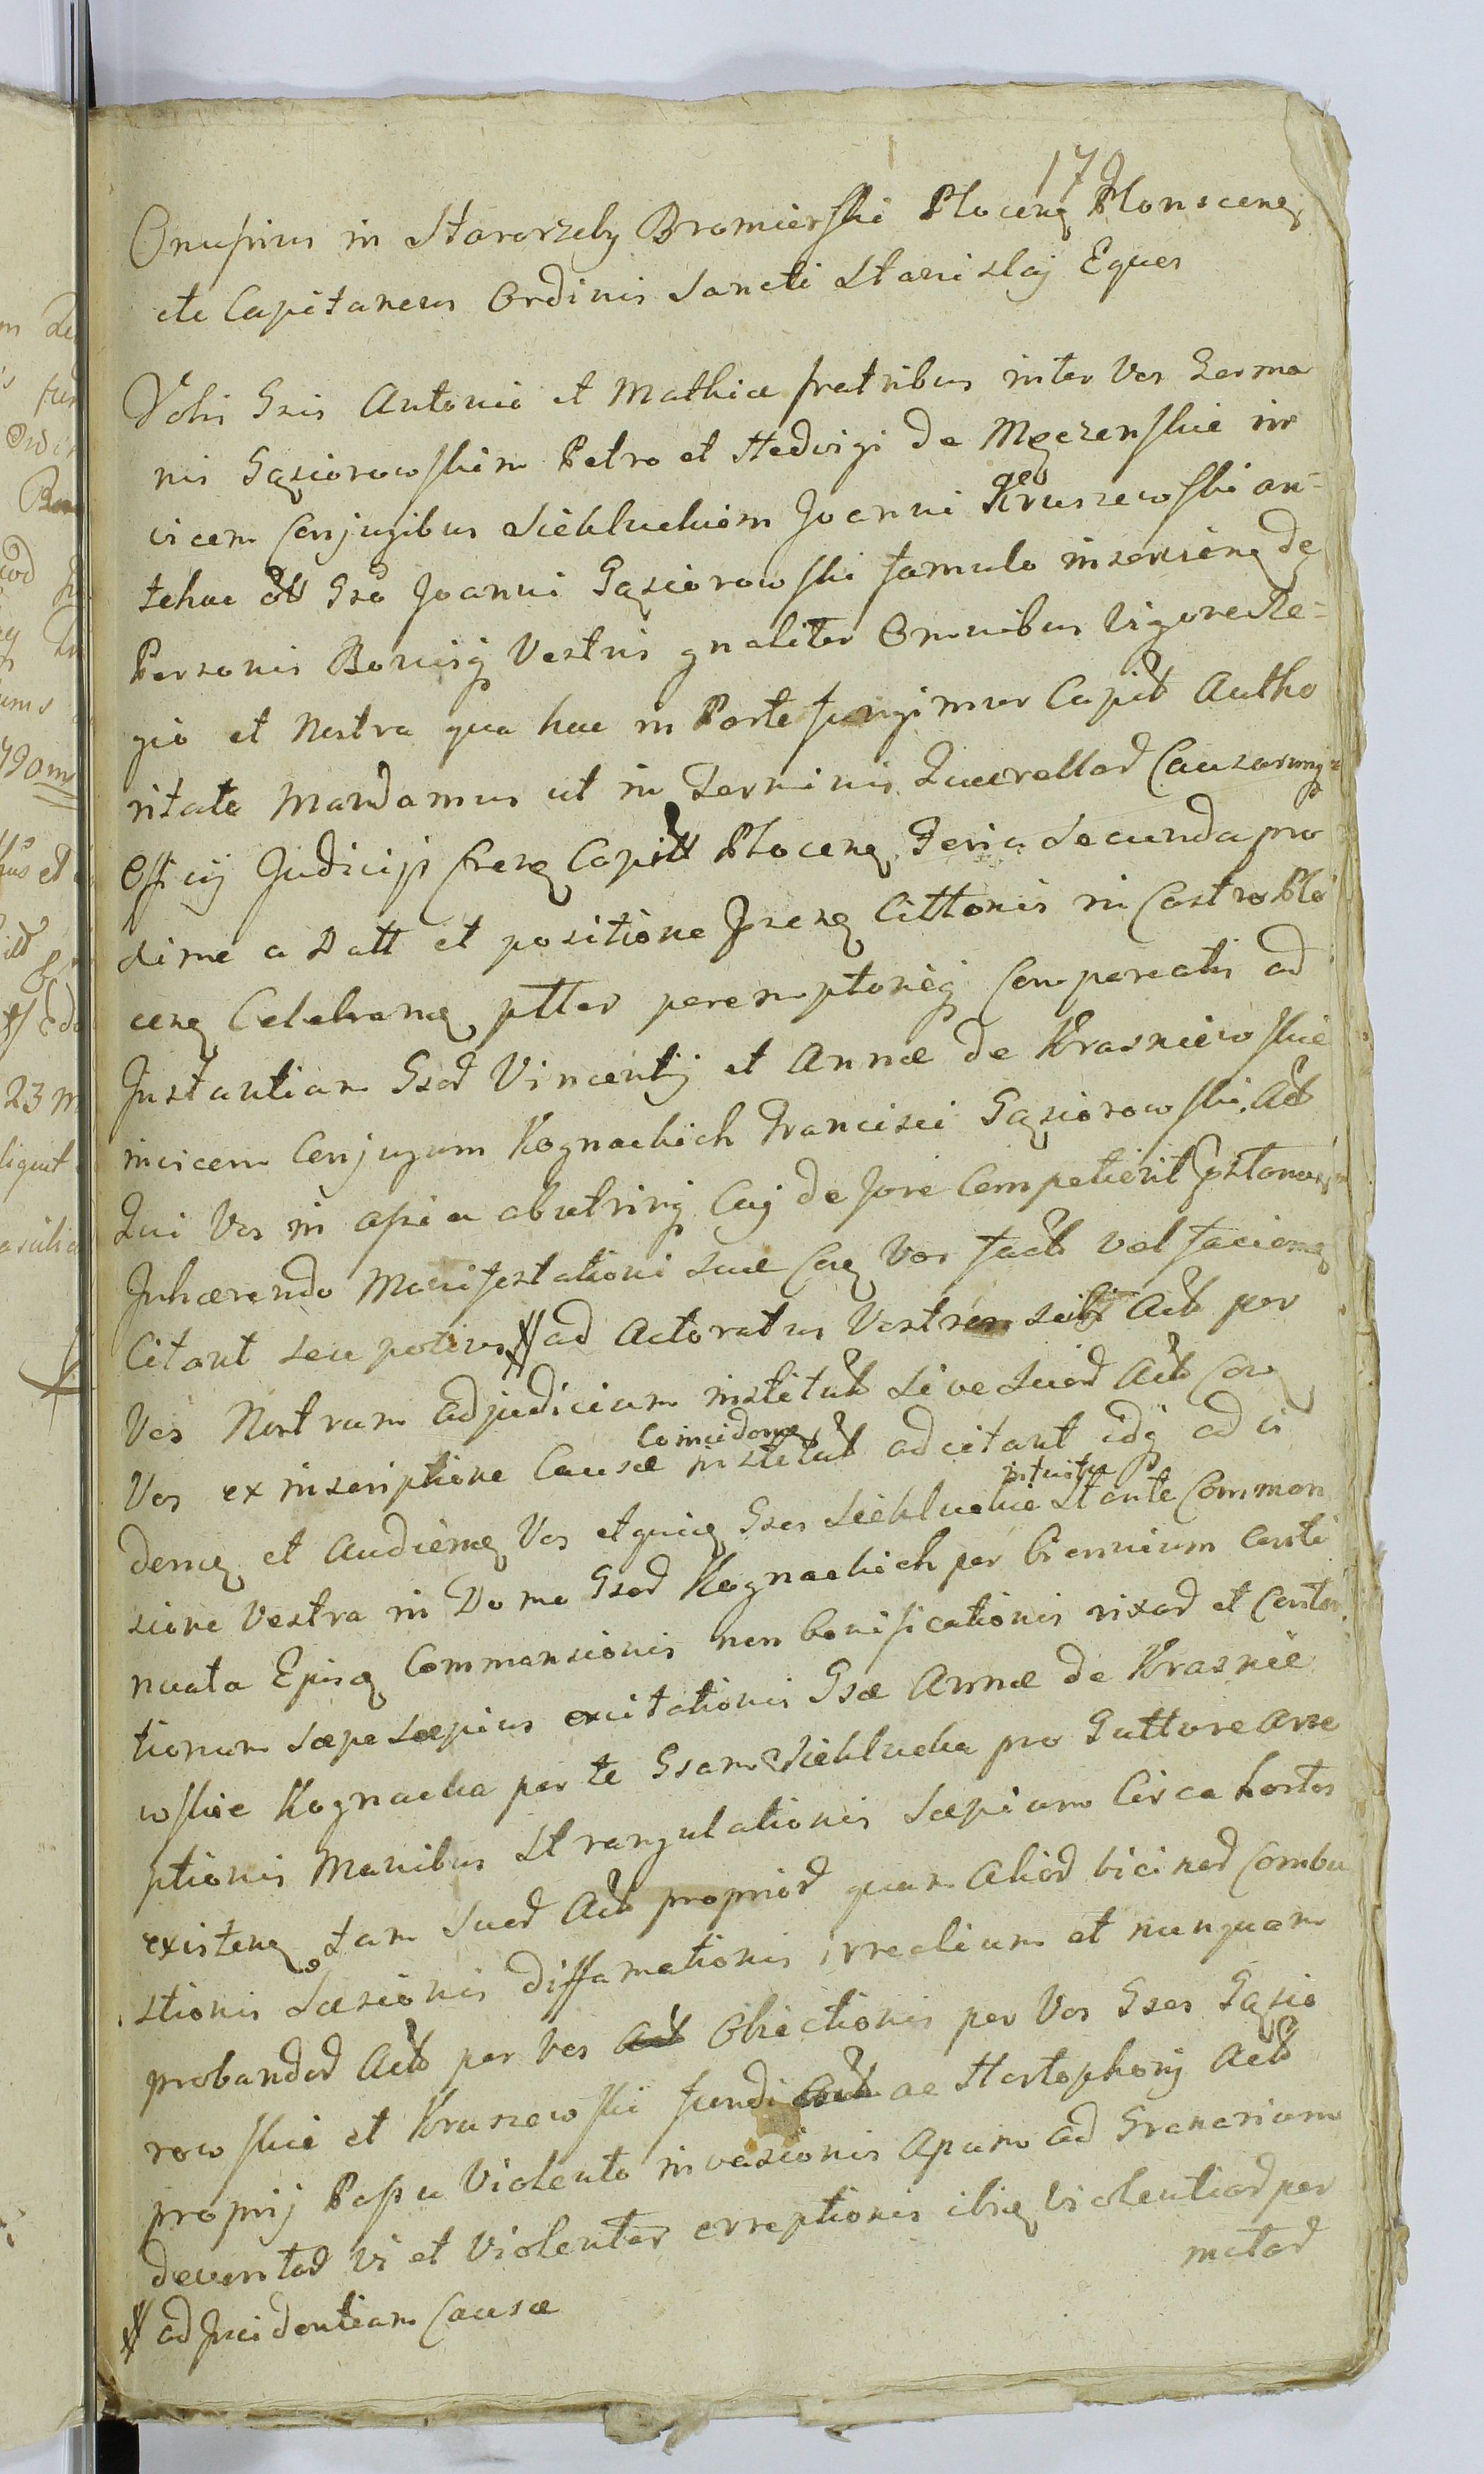 179
Onufrius in Starorzeby Bromierski Plocens Plonscens
etc Capitaneus Ordinis Sancti Stanislaj Eques
Vobis Gsis Antonio et Mathiæ fratribus inter Vos Germa
nis Gąsiorowskim Petro et Hedvigi de Męczenskie in
vicem Conjugibus Siekluckiem Joanni Kruszewski an=
geo
tehac Gso Joanni Gąsiorowski famulo inserviens de
Personis Bonisq Vestris gnaliter Omnibus Vigore Re=
gio et Nostra qua hac in Parte fungimur Capit Autho
ritate Mandamus ut in Terminis Querellar Causarumq=
Officij Judicij Crens Capit Plocens Feria Secunda pro
xime a Datt et positione Prens Cittonis in Castro Plo
cens Celebrans ptter peremptorieq Compereatis ad
Instantiam Gsor Vincentij et Annæ de Krasniewskie
invicem Conjugum Kognackich Francisci Gąsiorowski Act
Qui Vos in assa abutrinq Cuj de Jure Competierit
Inhærendo Manifestationi suæ Cor Vos fact vel faciens
Citant seu potius # ad Actoratus Vestrum sibi Act per
Vos Nostrum ad judicium institut sive suor Act Cor
Vos ex inscriptione Causæ institut adcitant idq ad vi
Coincidens
dens et Audiens Vos etquis Gsos Siekluckie Stante Comman
intuitu
sione Vestra in Domo Gsor Kognackich per biennium Conti
nuata Ejusq Commansionis non bonificationis rixar et Conten
tionum sæpe sæpius excitationis Gsæ Annæ de Krasnie
wskie Kognacka per te Gsam Sieklucka pro Gutture Arre
ptionis Manibus Strangulationis Sæpium Circa hortos
existens tam suor Act proprior quam Alior vicinor Combu
stionis Læsionis diffamationis irrealium et nunquam
probandor Act per Vos Obiectionis per Vos Gsos Gąsio
rowskie et Kruszewski fundi ac Hortophorij Act
proprij Passu Violento invasionis Apum ad Granarium
deventar Vi et Violenter erreptionis ibiq Violentiar per
metar
# ad Incidentiam Causæ